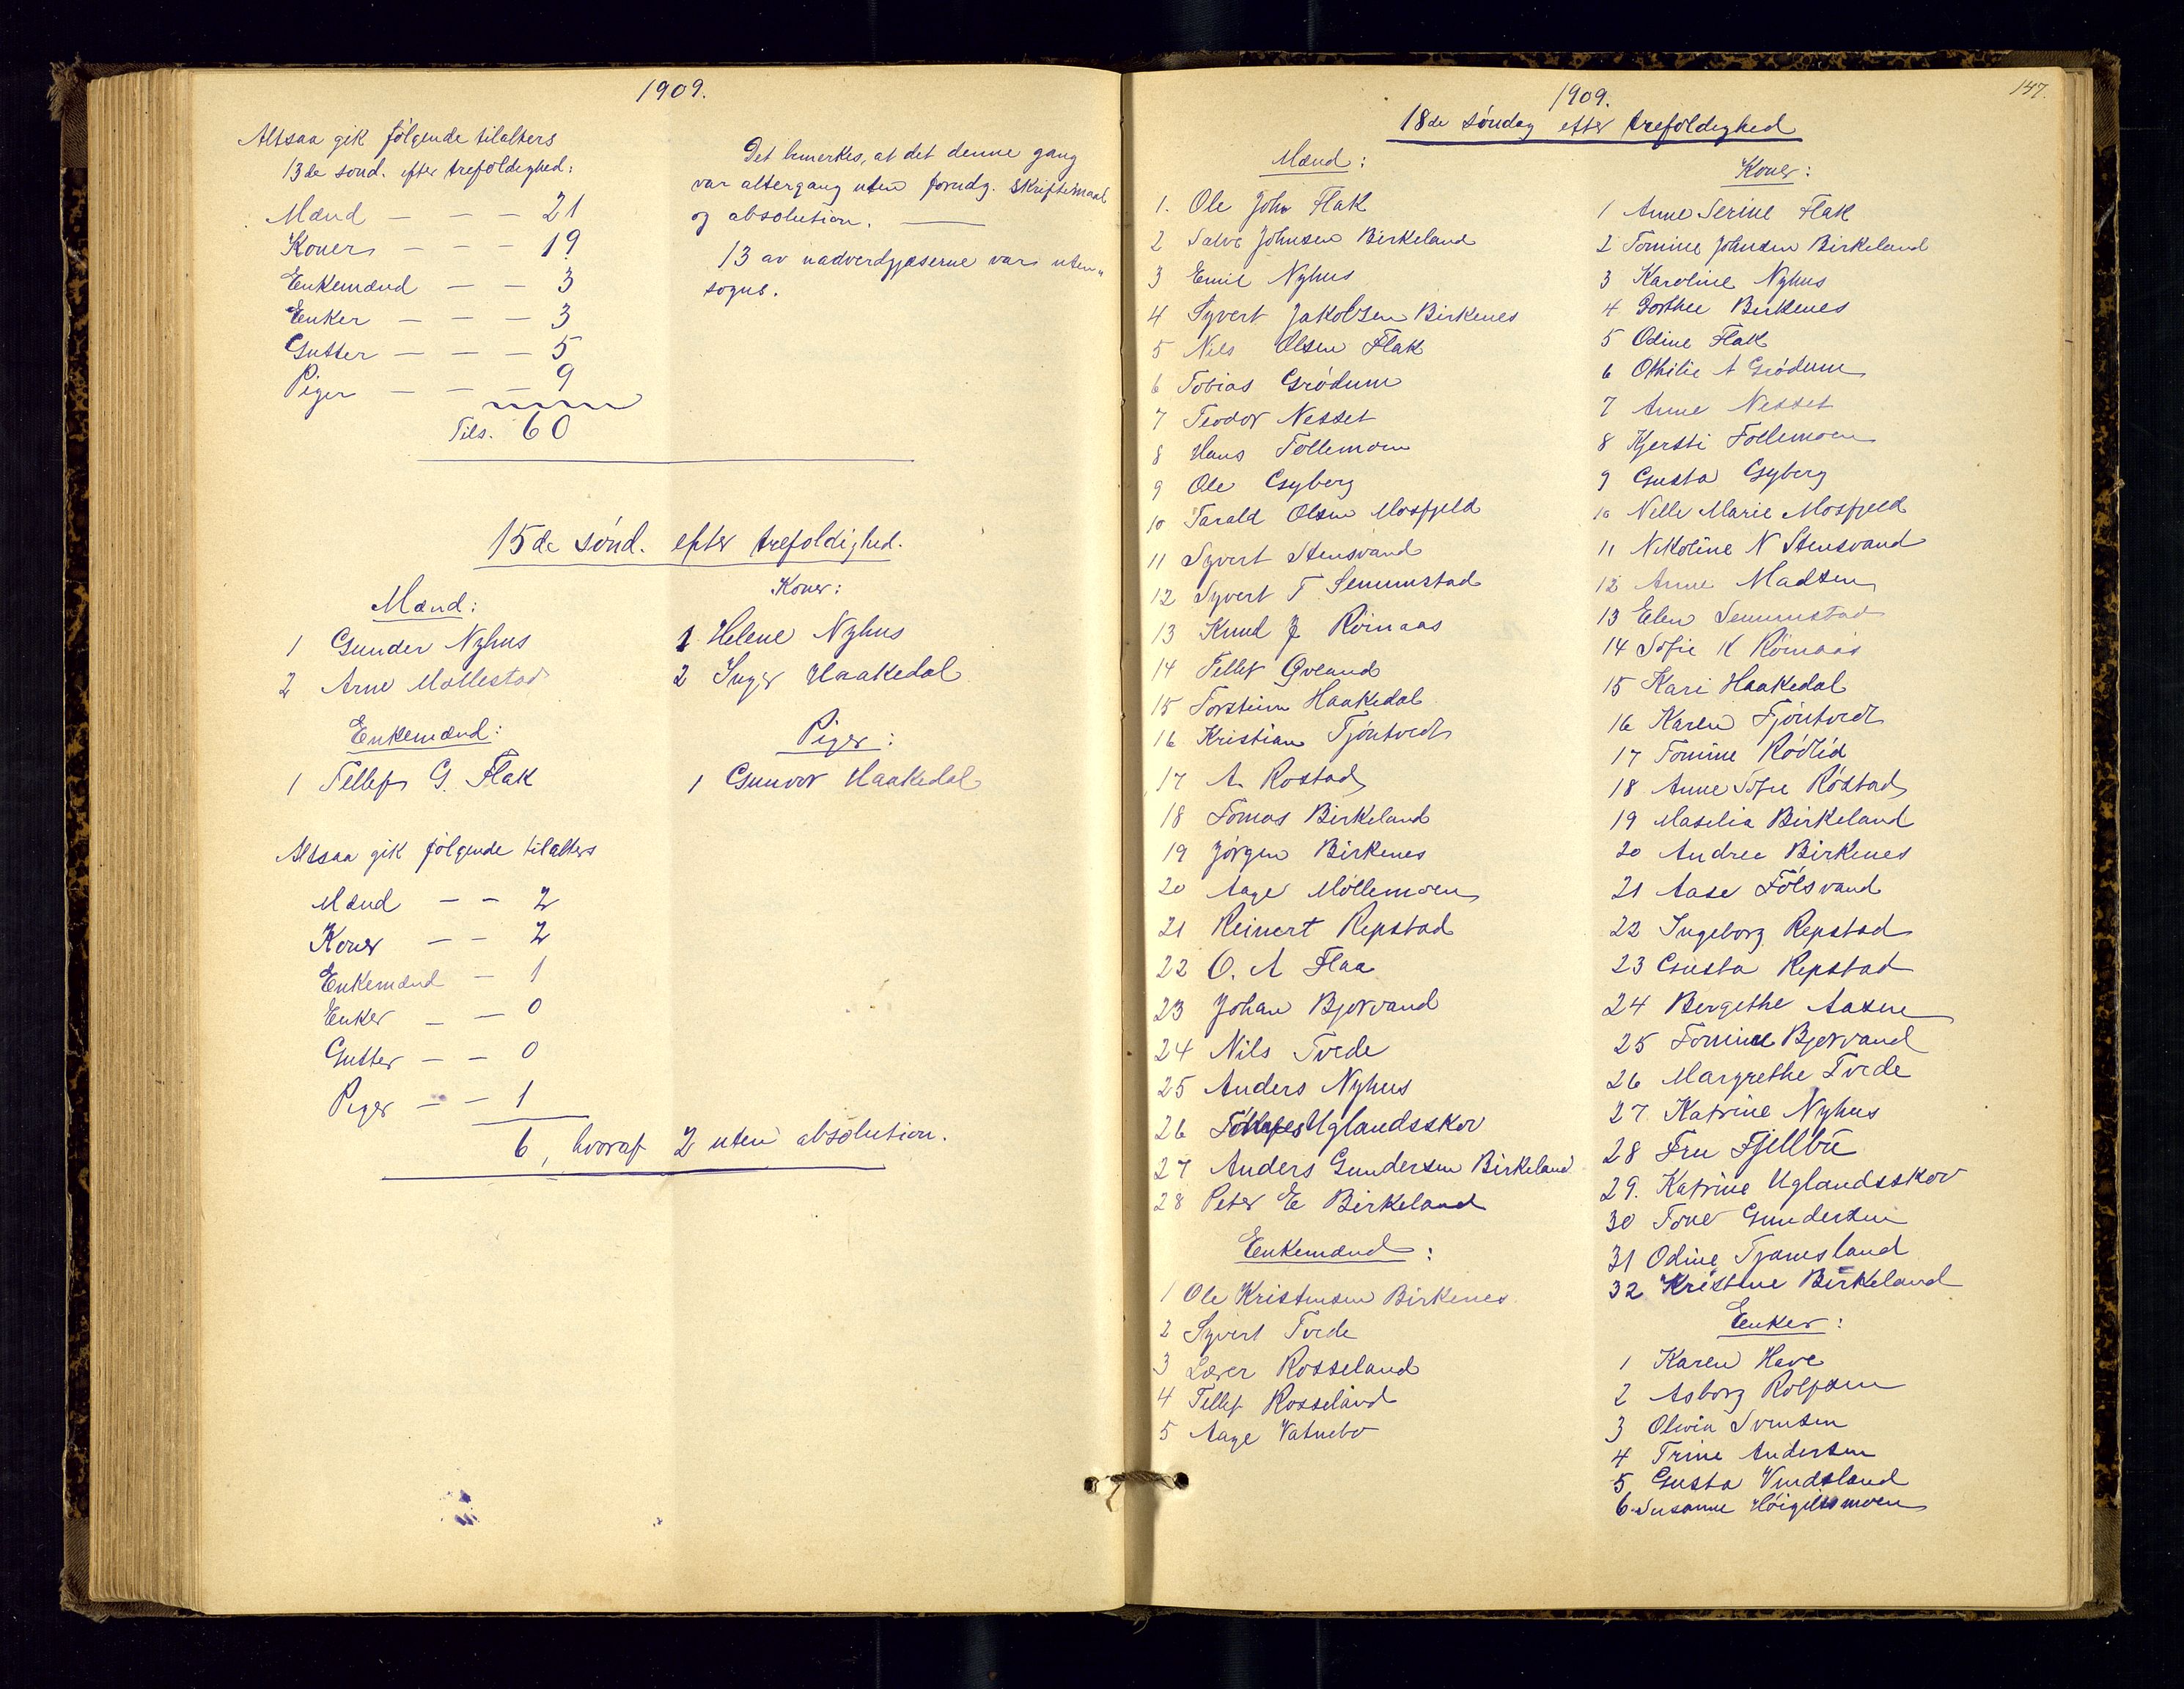 1909.
Altsaa gik følgende tilalters
13de sønd. efter trefoldighed:
Mænd — — — 21
Koner — — — 19
Enkemænd — — 3
Enker — — — 3
Gutter — — — 5
Piger — — — 9
Tils. 60
Det bemerkes, at det denne gang
var altergang uten forudg. skriftemaal
og absolution. —
13 av nadverdgjæsterne var uten-
sogns.
15de sønd. efter trefoldighed.
Mænd:
1 Gunder Nyhus
2 Arne Mollestad
Enkemænd:
1 Tellef G. Flak
Koner:
1 Helene Nyhus
2 Inger Haakedal
Piger:
1 Gunvor Haakedal
Altsaa gik følgende tilalters
Mænd — — 2
Koner — — 2
Enkemænd — 1
Enker — — 0
Gutter — — 0
Piger — — 1
6, hvoraf 2 uten absolution.
147.
1909.
18de søndag efter trefoldighed
Mænd:
1. Ole John Flak
2 Salve Johnsen Birkeland
3 Emil Nyhus
4 Syvert Jakobsen Birkenes
5 Nils Olsen Flak
6 Tobias Grødum
7 Teodor Nesset
8 Hans Tollemoen
9 Ole Gyberg
10 Tarald Olsen Mosfjeld
11 Syvert Stensvand
12 Syvert T Senumstad
13 Knud J Röinaas
14 Tellef Øvland
15 Torstein Haakedal
16 Kristian Tjöntvedt
17 A. Rostad
18 Tomas Birkeland
19 Jørgen Birkenes
20 Aage Möllemoen
21 Reinert Repstad
22 O. A Flaa
23 Johan Bjorvand
24 Nils Tvede
25 Anders Nyhus
26 Uglandsskov
27 Anders Gundersen Birkeland
28 Peter E Birkeland
Enkemænd:
1 Ole Kristensen Birkenes
2 Syvert Tvede
3 Rosseland
4 Tellef Rosseland
5 Aage Vatnebo
Koner:
1 Anne Serine Flak
2 Tomine Johnsen Birkeland
3 Karoline Nyhus
4 Dorthee Birkenes
5 Odine Flak
6 Othilie A Grödum
7 Anne Nesset
8 Kjersti Tollemoen
9 Gusta Gyberg
10 Nille Marie Mosfjeld
11 Nikoline N Stensvand
12 Anne Madsen
13 Elen Senumstad
14 Sofie K Röinaas
15 Kari Haakedal
16 Karen Tjöntvedt
17 Tomine Rødlid
18 Anne Sofie Röstad
19 Maselia Birkeland
20 Andrea Birkenes
21 Aase Fölsvand
22 Ingeborg Repstad
23 Gusta Repstad
24 Bergethe Aasen
25 Tomine Bjorvand
26 Margrethe Tvede
27 Katrine Nyhus
28 Fru Fjellbu
29. Katrine Uglandsskov
30 Tone Gundersen
31 Odine Tjomsland
32 Kristine Birkeland
Enker:
1 Karen Have
2 Asborg Rolfsen
3 Olevia Svensen
4 Trine Andersen
5 Gusta Vindsland
6 Susanne Höigilsmoen